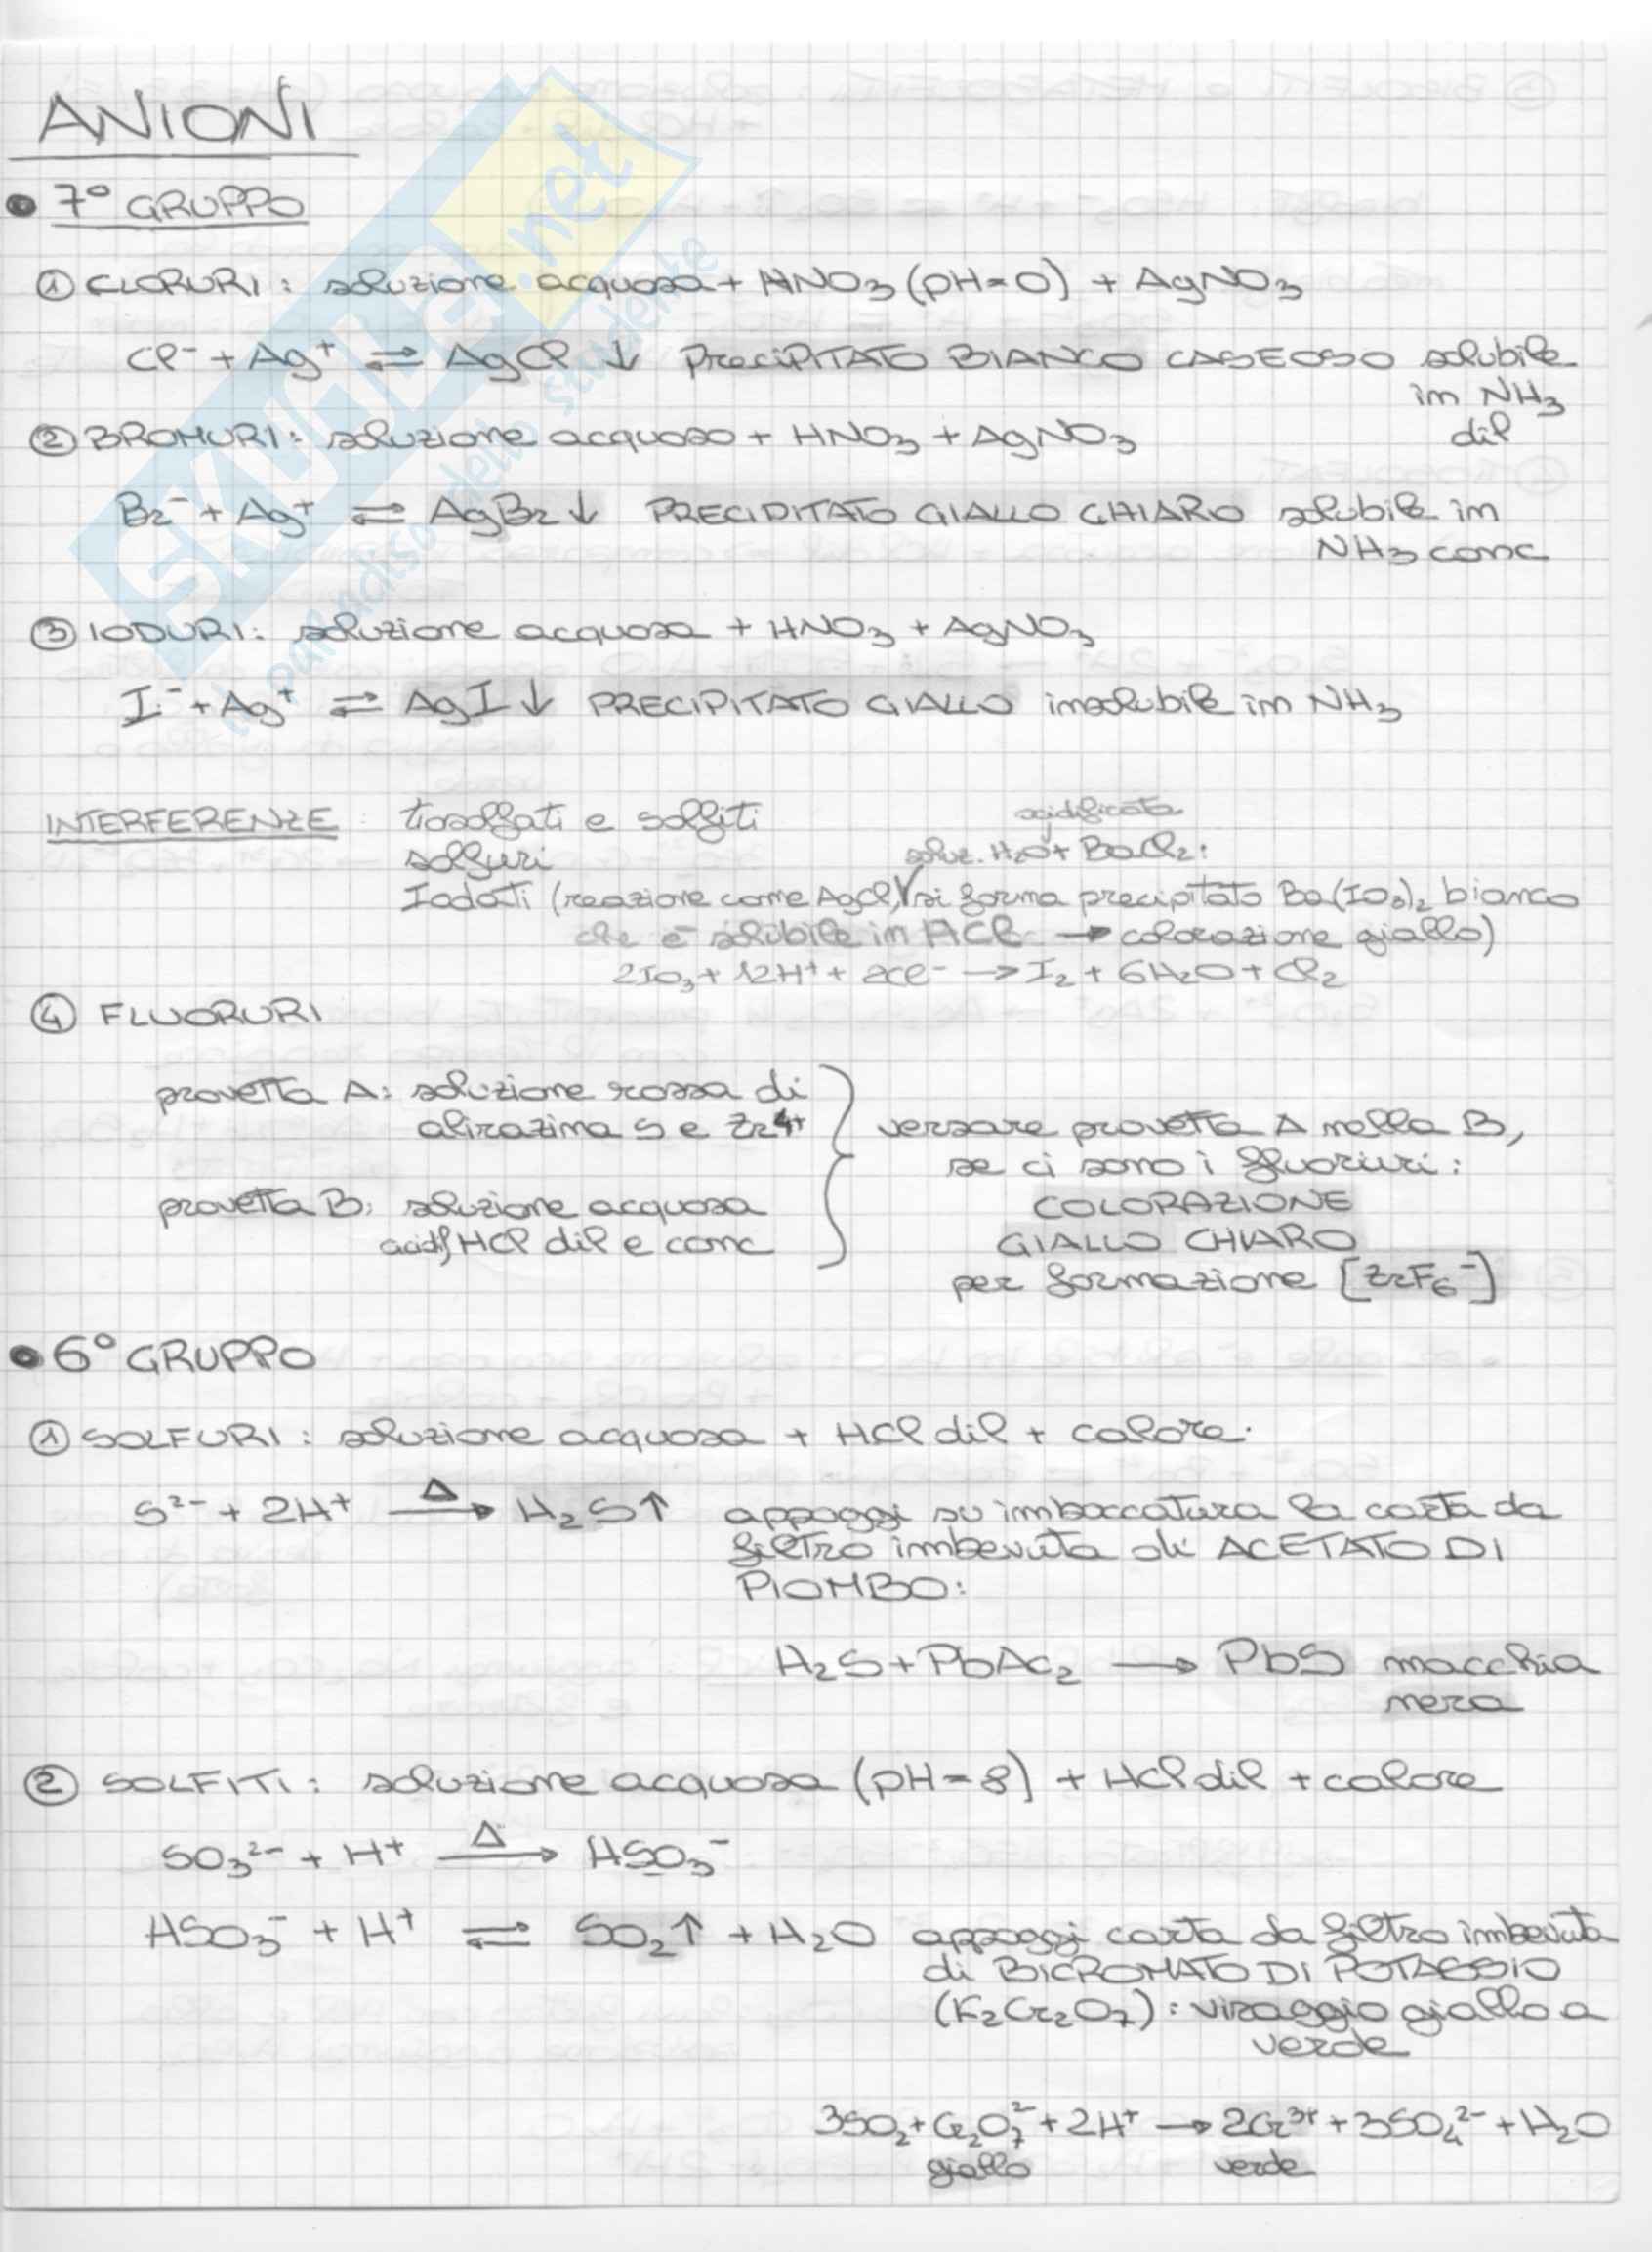 ANIONI
• 7° GRUPPO
① CLORURI: soluzione acquosa + HNO₃ (pH=0) + AgNO₃
Cl⁻ + Ag⁺ ⇌ AgCl ↓ PreciPITATO BIANCO CASEOSO solubile
in NH₃
dil
② BROMURI: soluzione acquosa + HNO₃ + AgNO₃
Br⁻ + Ag⁺ ⇌ AgBr ↓ PRECIPITATO GIALLO CHIARO solubile in
NH₃ conc
③ IODURI: soluzione acquosa + HNO₃ + AgNO₃
I⁻ + Ag⁺ ⇌ AgI ↓ PRECIPITATO GIALLO insolubile in NH₃
INTERFERENZE: tiosolfati e solfiti
solfuri
acidificata
soluz. H₂O + BaCl₂:
Iodati (reazione come AgCl, si forma precipitato Ba(IO₃)₂ bianco
che è solubile in HCl → colorazione gialla)
2IO₃ + 12H⁺ + 2Cl⁻ → I₂ + 6H₂O + Cl₂
④ FLUORURI
provetta A: soluzione rossa di
alizarina S e Zr⁴⁺
provetta B: soluzione acquosa
acidif HCl dil e conc
versare provetta A nella B,
se ci sono i fluoruri:
COLORAZIONE
GIALLO CHIARO
per formazione [ZrF₆⁻]
• 6° GRUPPO
① SOLFURI: soluzione acquosa + HCl dil + calore.
S²⁻ + 2H⁺ Δ→ H₂S↑ appoggi su imboccatura la carta da
filtro imbevuta di ACETATO DI
PIOMBO:
H₂S + PbAc₂ → PbS macchia
nera
② SOLFITI: soluzione acquosa (pH=8) + HCl dil + calore
SO₃²⁻ + H⁺ Δ→ HSO₃⁻
HSO₃⁻ + H⁺ ⇌ SO₂↑ + H₂O appoggi carta da filtro imbevuta
di BICROMATO DI POTASSIO
(K₂Cr₂O₇): viraggio giallo a
verde
3SO₂ + Cr₂O₇²⁻ + 2H⁺ → 2Cr³⁺ + 3SO₄²⁻ + H₂O
giallo verde
SKUOLA.net
il paradiso dello studente